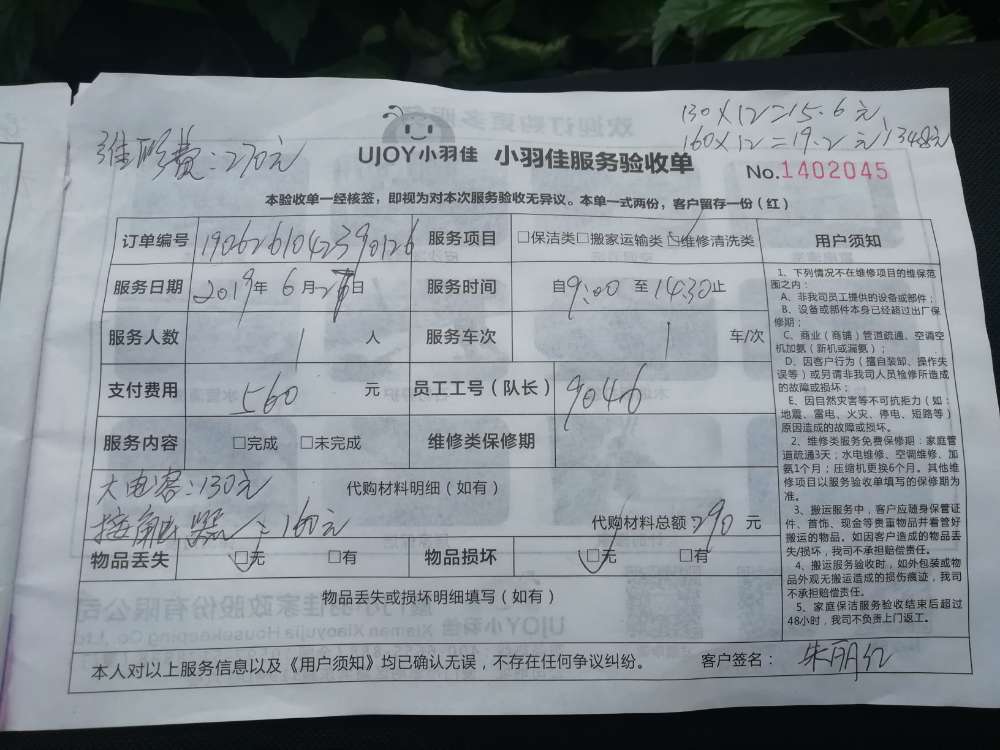 130×12=15.6元
160×12=19.2元
维修费:270元
UJOY小羽佳 小羽佳服务验收单
No.1402045
本验收单一经核签，即视为对本次服务验收无异议。本单一式两份，客户留存一份（红）
订单编号 1906261042390126 服务项目 □保洁类□搬家运输类□维修清洗类
服务日期 2019年6月 日 服务时间 自9:00至14:30止
服务人数 1 人 服务车次 1 车/次
支付费用 560 元 员工工号（队长） 9046
服务内容 □完成 □未完成 维修类保修期
大电容:130元 代购材料明细（如有）
接触器:160元 代购材料总额:290元
物品丢失 □无 □有 物品损坏 □无 □有
物品丢失或损坏明细填写（如有）
本人对以上服务信息以及《用户须知》均已确认无误，不存在任何争议纠纷。 客户签名：朱丽红
用户须知
1、下列情况不在维修项目的维保范
围之内：
A、非我司员工提供的设备或部件；
B、设备或部件本身已经超过出厂保
修期；
C、商业（商铺）管道疏通、空调空
机加氨（新机或漏氨）；
D、因客户行为（擅自装卸、操作失
误等）或另请非我司人员检修所造成
的故障或损坏；
E、因自然灾害等不可抗拒力（如：
地震、雷电、火灾、停电、短路等）
原因造成的故障或损坏。
2、维修类服务免费保修期：家庭管
道疏通3天；水电维修、空调维修、加
氨1个月；压缩机更换6个月。其他维
修项目以服务验收单填写的保修期为
准。
3、搬运服务中，客户应随身保管证
件、首饰、现金等贵重物品并看管好
搬运的物品。如因客户造成的物品丢
失/损坏，我司不承担赔偿责任。
4、搬运服务验收时，如外包装或物
品外观无搬运造成的损伤痕迹，我司
不承担赔偿责任。
5、家庭保洁服务验收结束后超过
48小时，我司不负责上门返工。